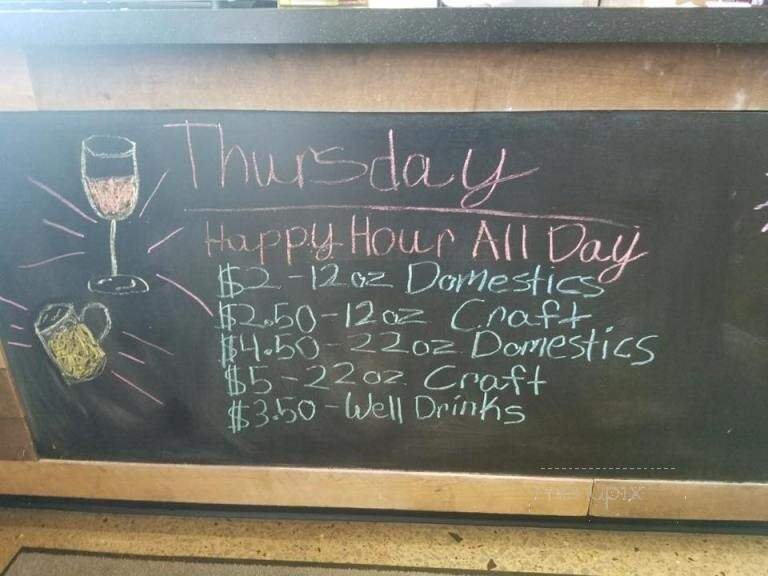 Thursday
Happy Hour All Day
$2 - 12 oz Domestics
$2.50 - 12 oz Craft
$4.50 - 22 oz Domestics
$5 - 22 oz Craft
$3.50 - Well Drinks
menupix